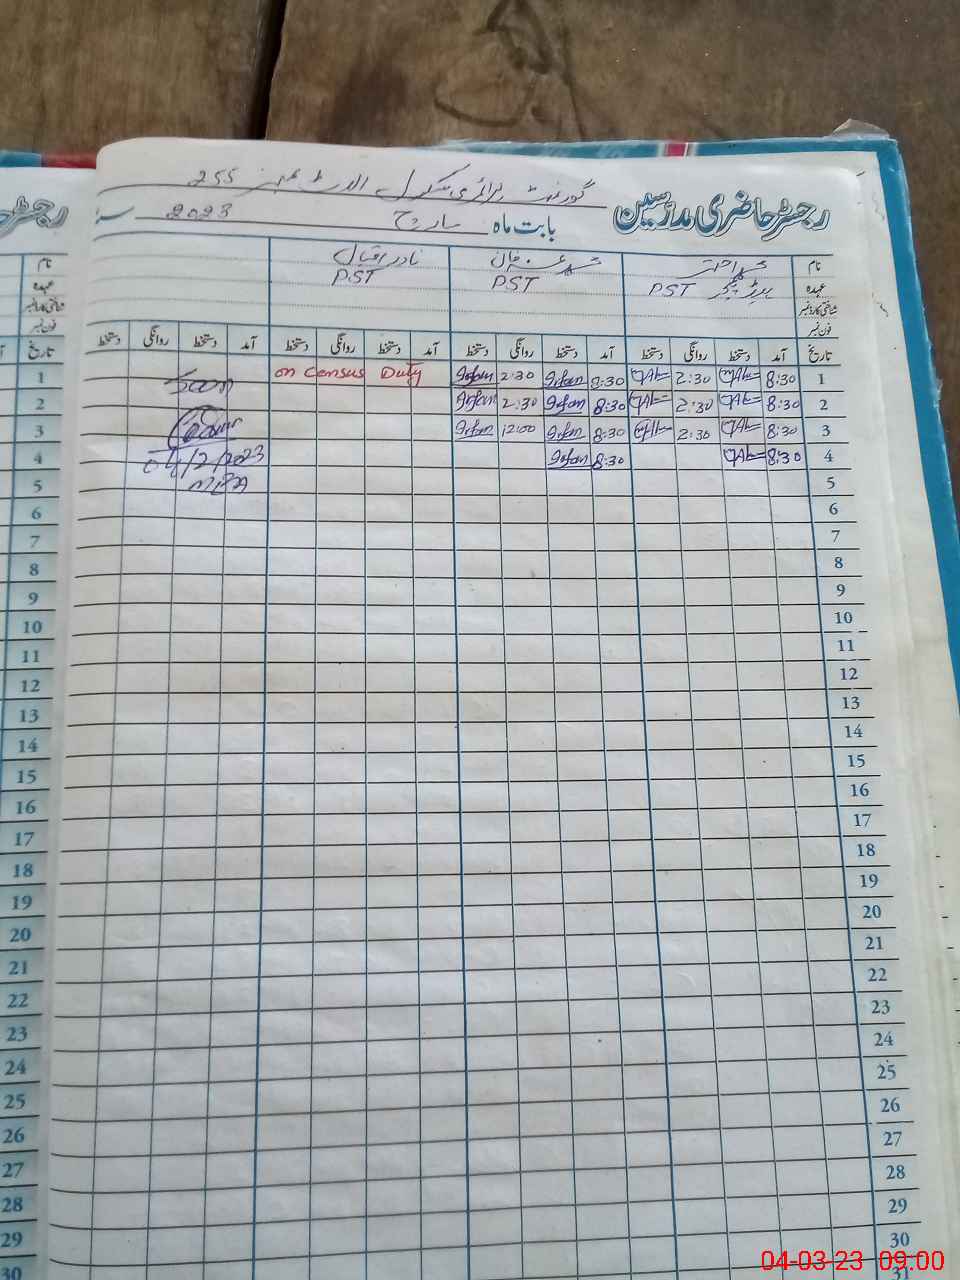 گورنمنٹ پرائمری سکول الاٹ نمبر 255
رجسٹر حاضری مدرسین بابت ماہ مارچ 2023
نام نادر اقبال
عہدہ PST PST PST
شناختی کارڈ نمبر
فون نمبر
تاریخ آمد دستخط روانگی دستخط آمد دستخط روانگی دستخط آمد دستخط روانگی دستخط آمد دستخط روانگی دستخط
1 8:30 2:30 8:30 Irfan 2:30 Irfan on Census Duty
2 8:30 2:30 8:30 Irfan 2:30 Irfan
3 8:30 2:30 8:30 Irfan 12:00 Irfan
4 8:30 8:30 Irfan 04/2/2023
5
6
7
8
9
10
11
12
13
14
15
16
17
18
19
20
21
22
23
24
25
26
27
28
29
30
31
رجسٹر حا
نام
عہدہ
شناختی کارڈ نمبر
فون نمبر
تاریخ
1
2
3
4
5
6
7
8
9
10
11
12
13
14
15
16
17
18
19
20
21
22
23
24
25
26
27
28
29
30
04-03-23 09:00